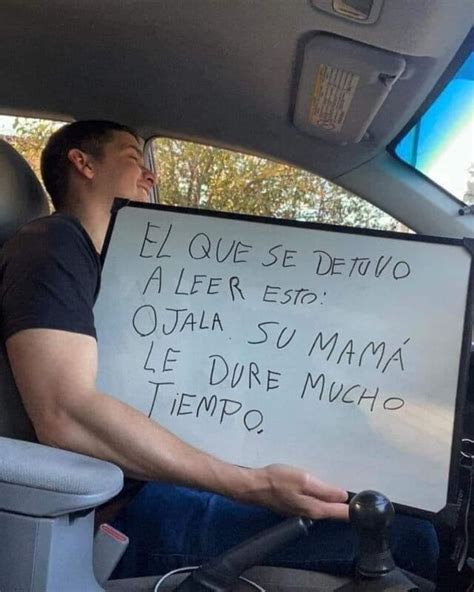 EL QUE SE DETUVO
A LEER ESTO:
OJALA. SU MAMÁ
LE DURE MUCHO
TIEMPO.